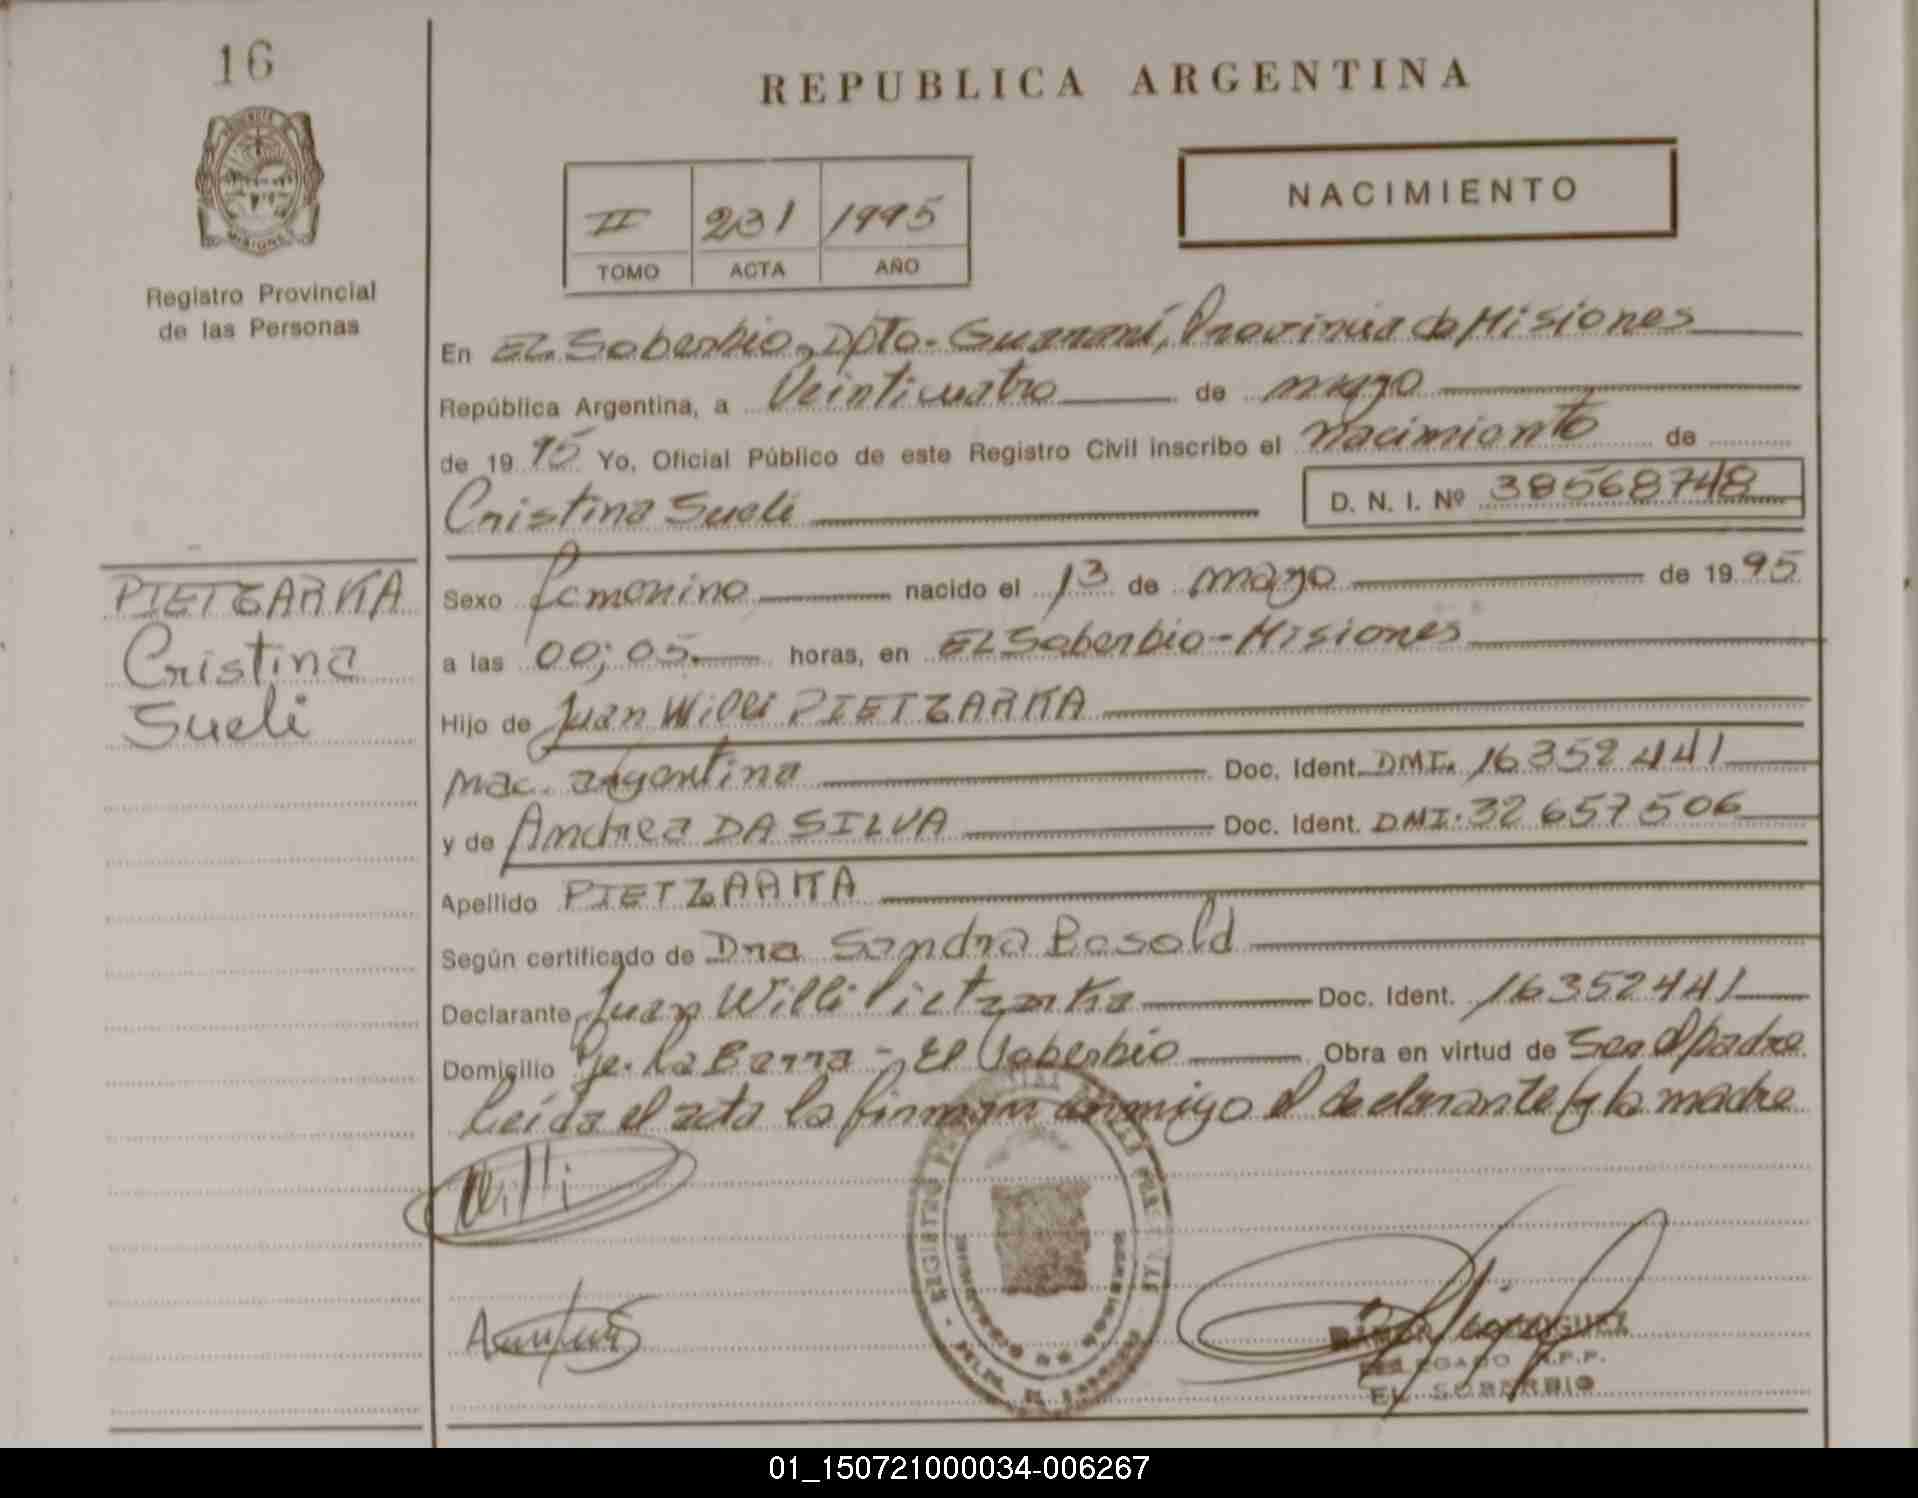 16
REPUBLICA ARGENTINA
NACIMIENTO
II 231 1995
TOMO ACTA AÑO
MISIONES
Registro Provincial
de las Personas
En EL Soberbio, Dpto. Guaraní, Provincia de Misiones
República Argentina, a Veinticuatro de mayo
de 1995 Yo, Oficial Público de este Registro Civil inscribo el nacimiento de
Cristina Sueli D. N. I. Nº 38568748
PIETZARKA
Cristina
Sueli
Sexo femenino nacido el 13 de mayo de 1995
a las 00;05. horas, en EL Soberbio - Misiones
Hijo de Juan Willi PIETZARKA
nac. argentina Doc. Ident. DMI. 16352441
y de Andrea DA SILVA Doc. Ident. DMI. 32657506
Apellido PIETZARKA
Según certificado de Dra Sandra Basold
Declarante Juan Willi Pietzarka Doc. Ident. 16352441
Domicilio Pje. La Barra - El Soberbio Obra en virtud de Ser el padre
Leída el acta la firman conmigo el declarante y la madre
Willi
DELEGADO R.P.P.
EL SOBERBIO
01_150721000034-006267